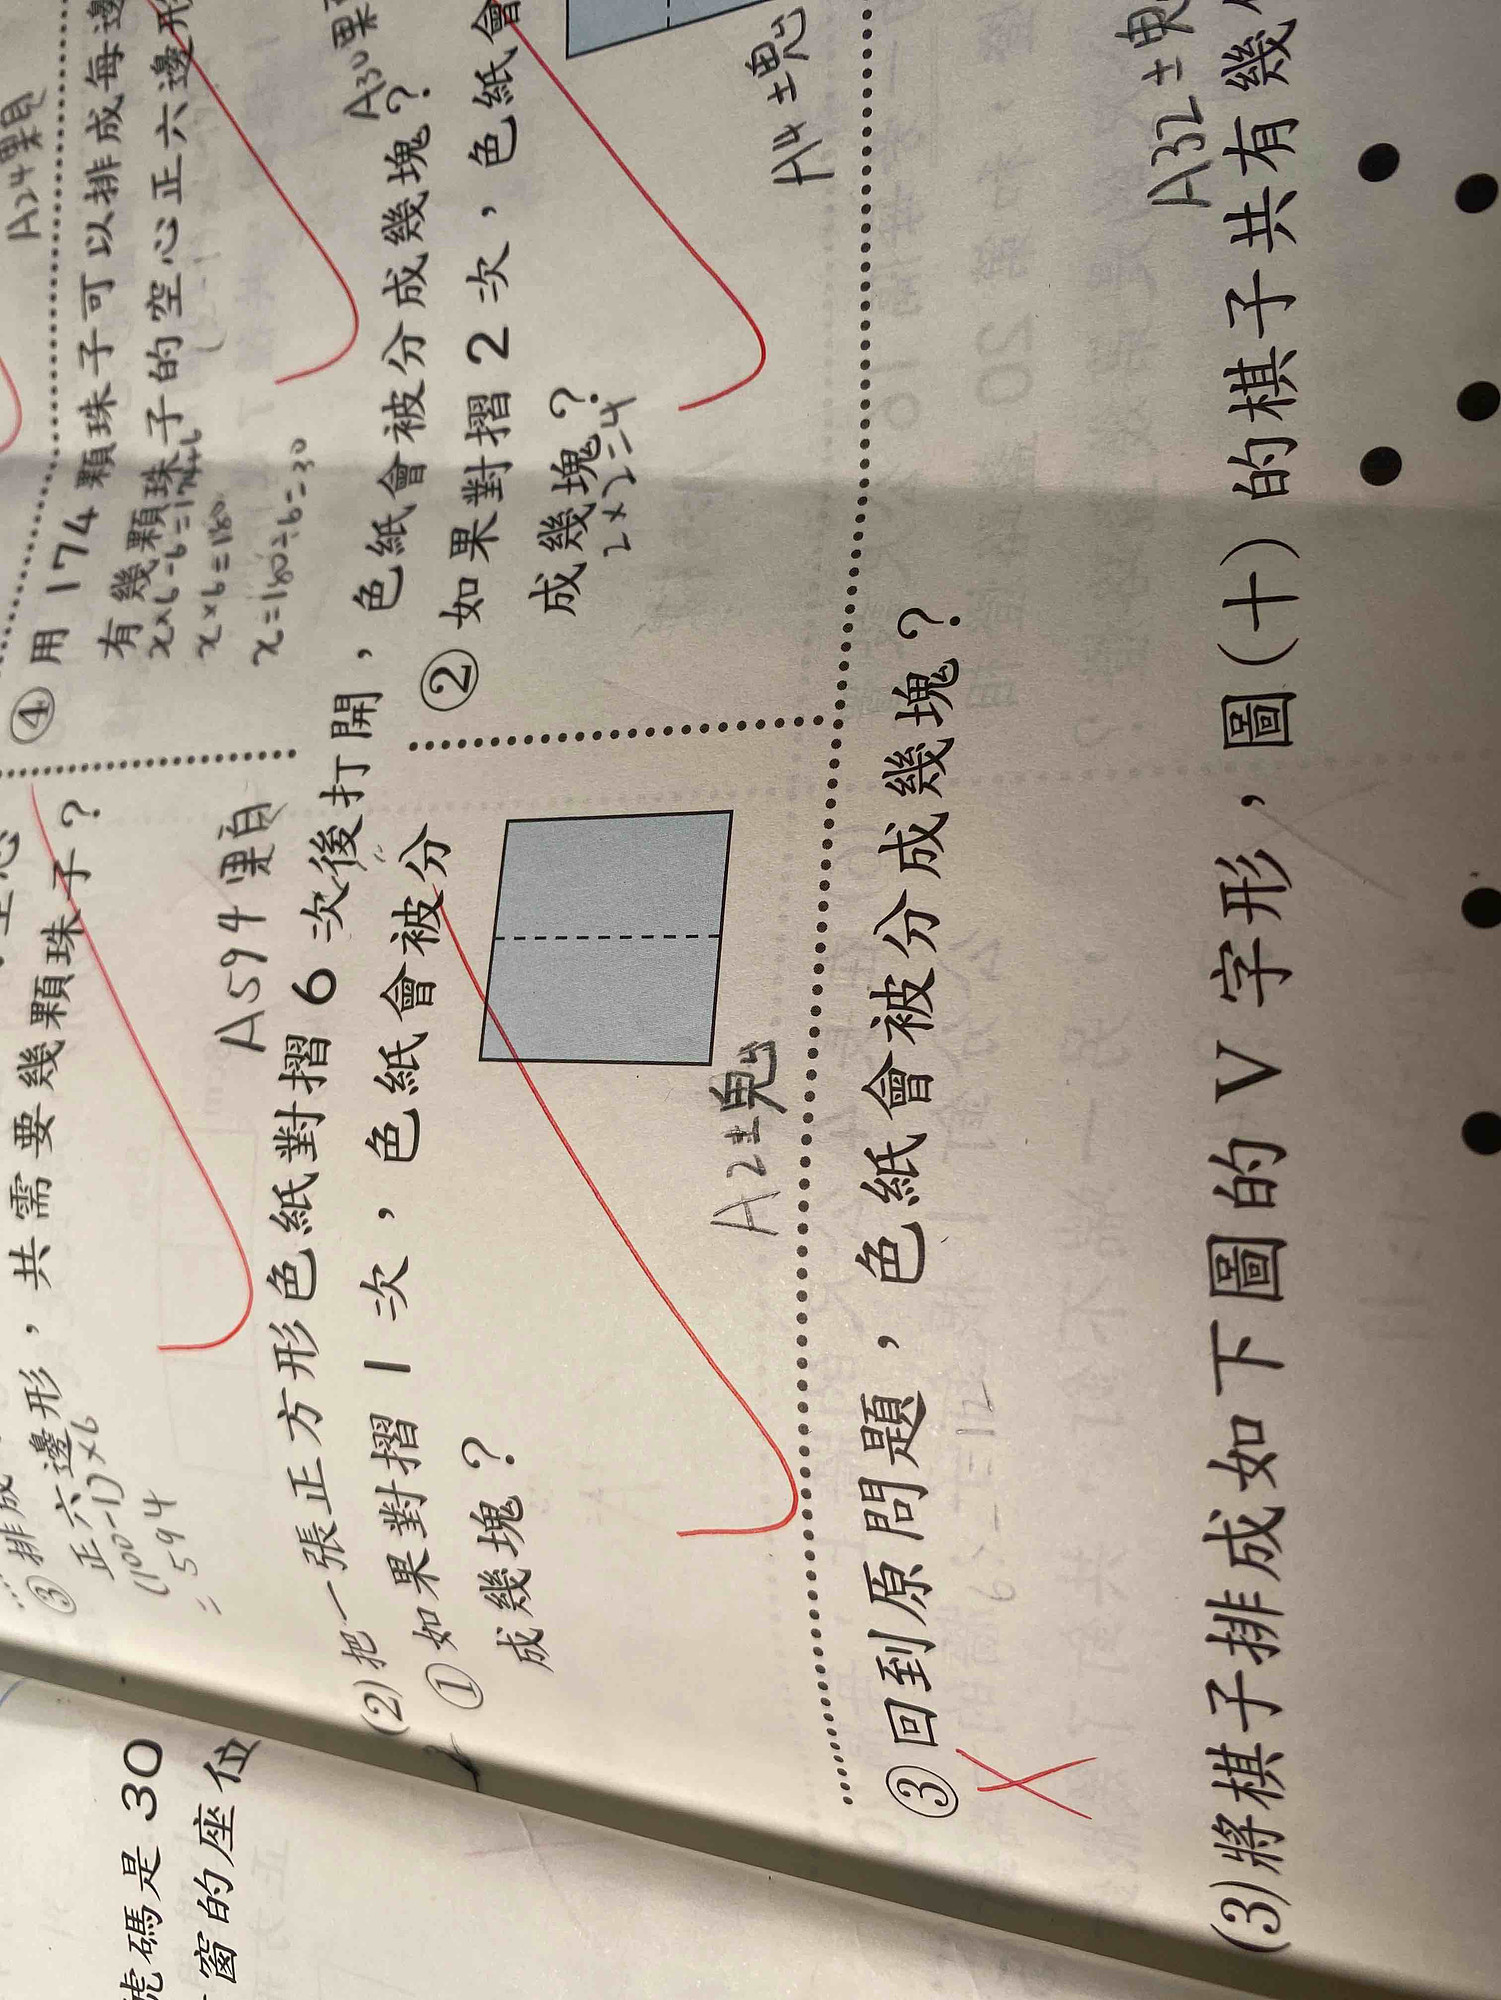 A24顆
④用 174 顆珠子可以排成每邊
有幾顆珠子的空心正六邊形
x×6-6=174+6
x×6=180
x=180÷6=30
A30顆
③排成
正六邊形，共需要幾顆珠子？
(100-1)×6
=594
A594顆
(2)把一張正方形色紙對摺 6 次後打開，色紙會被分成幾塊？
①如果對摺 1 次，色紙會被分
成幾塊？
A2塊
②如果對摺 2 次，色紙會
成幾塊？
2×2=4
A4塊
③回到原問題，色紙會被分成幾塊？
A32塊
(3)將棋子排成如下圖的 V 字形，圖(十)的棋子共有幾
號碼是 30
窗的座位